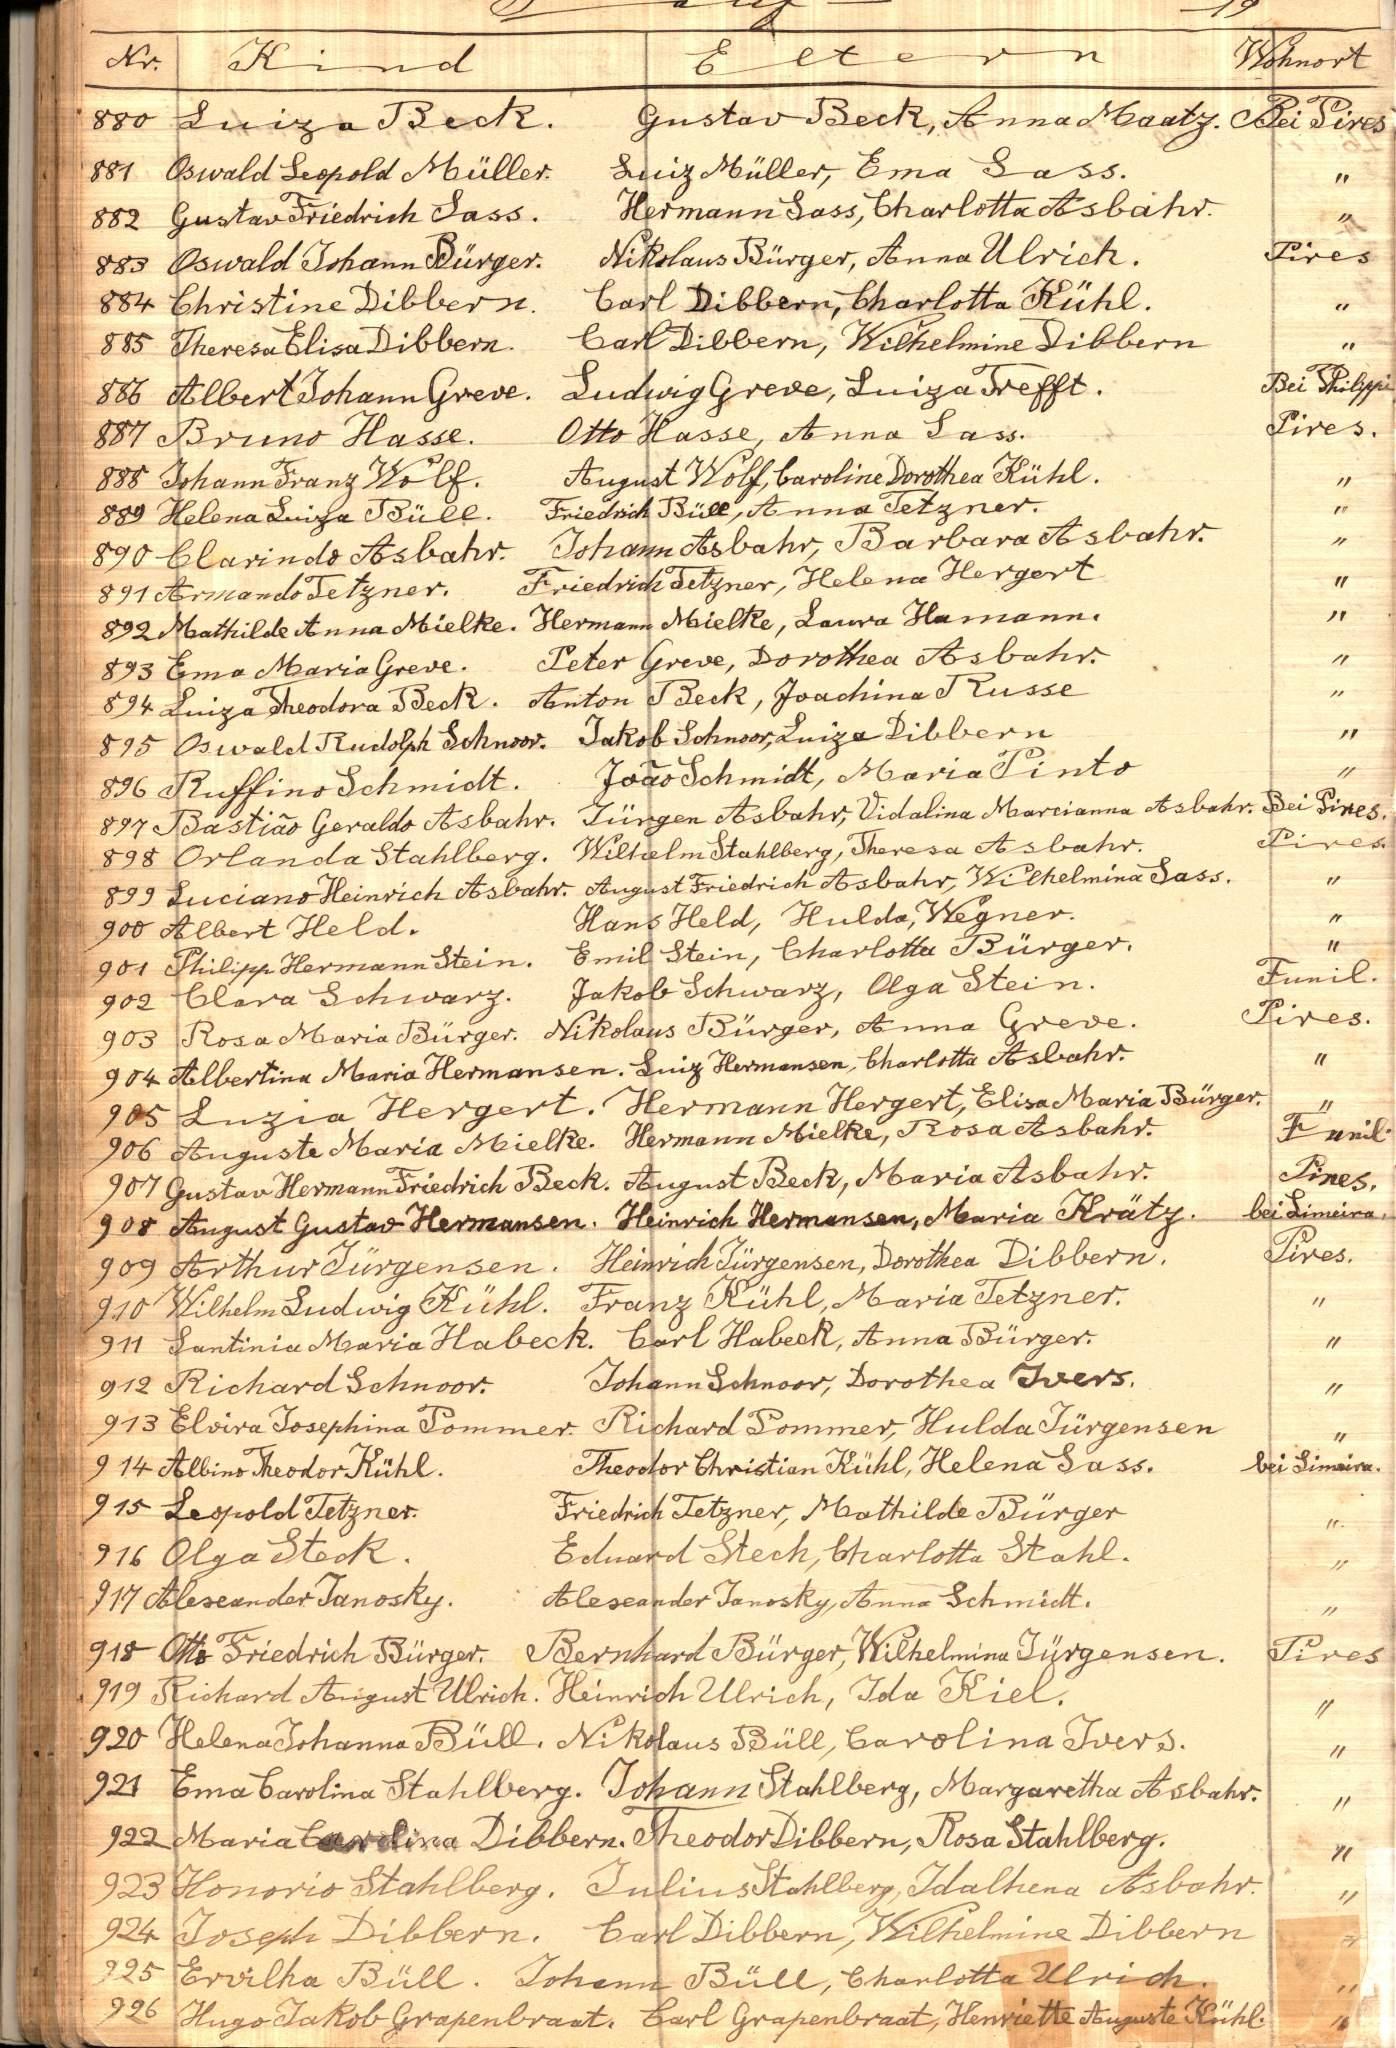 19
Nr. Kind Eltern Wohnort
880 Luiza Beck. Gustav Beck, Anna Maatz. Bei Pires
881 Oswald Leopold Müller. Luiz Müller, Ema Sass. "
882 Gustav Friedrich Sass. Hermann Sass, Charlotta Asbahr. "
883 Oswald Johann Bürger. Nikolaus Bürger, Anna Ulrich. Pires
884 Christine Dibbern. Carl Dibbern, Charlotta Kühl. "
885 Theresa Elisa Dibbern. Carl Dibbern, Wilhelmine Dibbern "
886 Albert Johann Greve. Ludwig Greve, Luiza Trefft. Bei Philippi
887 Bruno Hasse. Otto Hasse, Anna Sass. Pires.
888 Johann Franz Wolf. August Wolf, Caroline Dorothea Kühl. "
889 Helena Luiza Büll. Friedrich Büll, Anna Tetzner. "
890 Clarindo Asbahr. Johann Asbahr, Barbara Asbahr. "
891 Armando Tetzner. Friedrich Tetzner, Helena Hergert "
892 Mathilde Anna Mielke. Hermann Mielke, Laura Hamann. "
893 Ema Maria Greve. Peter Greve, Dorothea Asbahr. "
894 Luiza Theodora Beck. Anton Beck, Joachina Russe "
895 Oswald Rudolph Schnoor. Jakob Schnoor, Luiza Dibbern "
896 Ruffino Schmidt. João Schmidt, Maria Pinto "
897 Bastião Geraldo Asbahr. Jürgen Asbahr, Vidalina Marcianna Asbahr. Bei Pires.
898 Orlanda Stahlberg. Wilhelm Stahlberg, Theresa Asbahr. Pires.
899 Luciano Heinrich Asbahr. August Friedrich Asbahr, Wilhelmina Sass. "
900 Albert Held. Hans Held, Hulda, Wegner. "
901 Philipp Hermann Stein. Emil Stein, Charlotta Bürger. "
902 Clara Schwarz. Jakob Schwarz, Olga Stein. Funil.
903 Rosa Maria Bürger. Nikolaus Bürger, Anna Greve. Pires.
904 Albertina Maria Hermansen. Luiz Hermansen, Charlotta Asbahr. "
905 Luzia Hergert. Hermann Hergert, Elisa Maria Bürger. "
906 Auguste Maria Mielke. Hermann Mielke, Rosa Asbahr. Funil.
907 Gustav Hermann Friedrich Beck. August Beck, Maria Asbahr. Pires.
908 August Gustav Hermansen. Heinrich Hermansen, Maria Krätz. bei Limeira.
909 Arthur Jürgensen. Heinrich Jürgensen, Dorothea Dibbern. Pires.
910 Wilhelm Ludwig Kühl. Franz Kühl, Maria Tetzner. "
911 Santinia Maria Habeck. Carl Habeck, Anna Bürger. "
912 Richard Schnoor. Johann Schnoor, Dorothea Ivers. "
913 Elvira Josephina Pommer. Richard Pommer, Hulda Jürgensen "
914 Albino Theodor Kühl. Theodor Christian Kühl, Helena Sass. bei Limeira.
915 Leopold Tetzner. Friedrich Tetzner, Mathilde Bürger "
916 Olga Steck. Eduard Stech, Charlotta Stahl. "
917 Alexander Janosky. Alexander Janosky, Anna Schmidt. "
918 Otto Friedrich Bürger. Bernhard Bürger, Wilhelmina Jürgensen. Pires
919 Richard August Ulrich. Heinrich Ulrich, Ida Kiel. "
920 Helena Johanna Büll. Nikolaus Büll, Carolina Ivers. "
921 Ema Carolina Stahlberg. Johann Stahlberg, Margaretha Asbahr. "
922 Maria Carolina Dibbern. Theodor Dibbern, Rosa Stahlberg. "
923 Honorio Stahlberg. Julius Stahlberg, Idalhena Asbahr. "
924 Joseph Dibbern. Carl Dibbern, Wilhelmine Dibbern "
925 Ervilha Büll. Johann Büll, Charlotta Ulrich. "
926 Hugo Jakob Grapenbraat. Carl Grapenbraat, Henriette Auguste Kühl. "